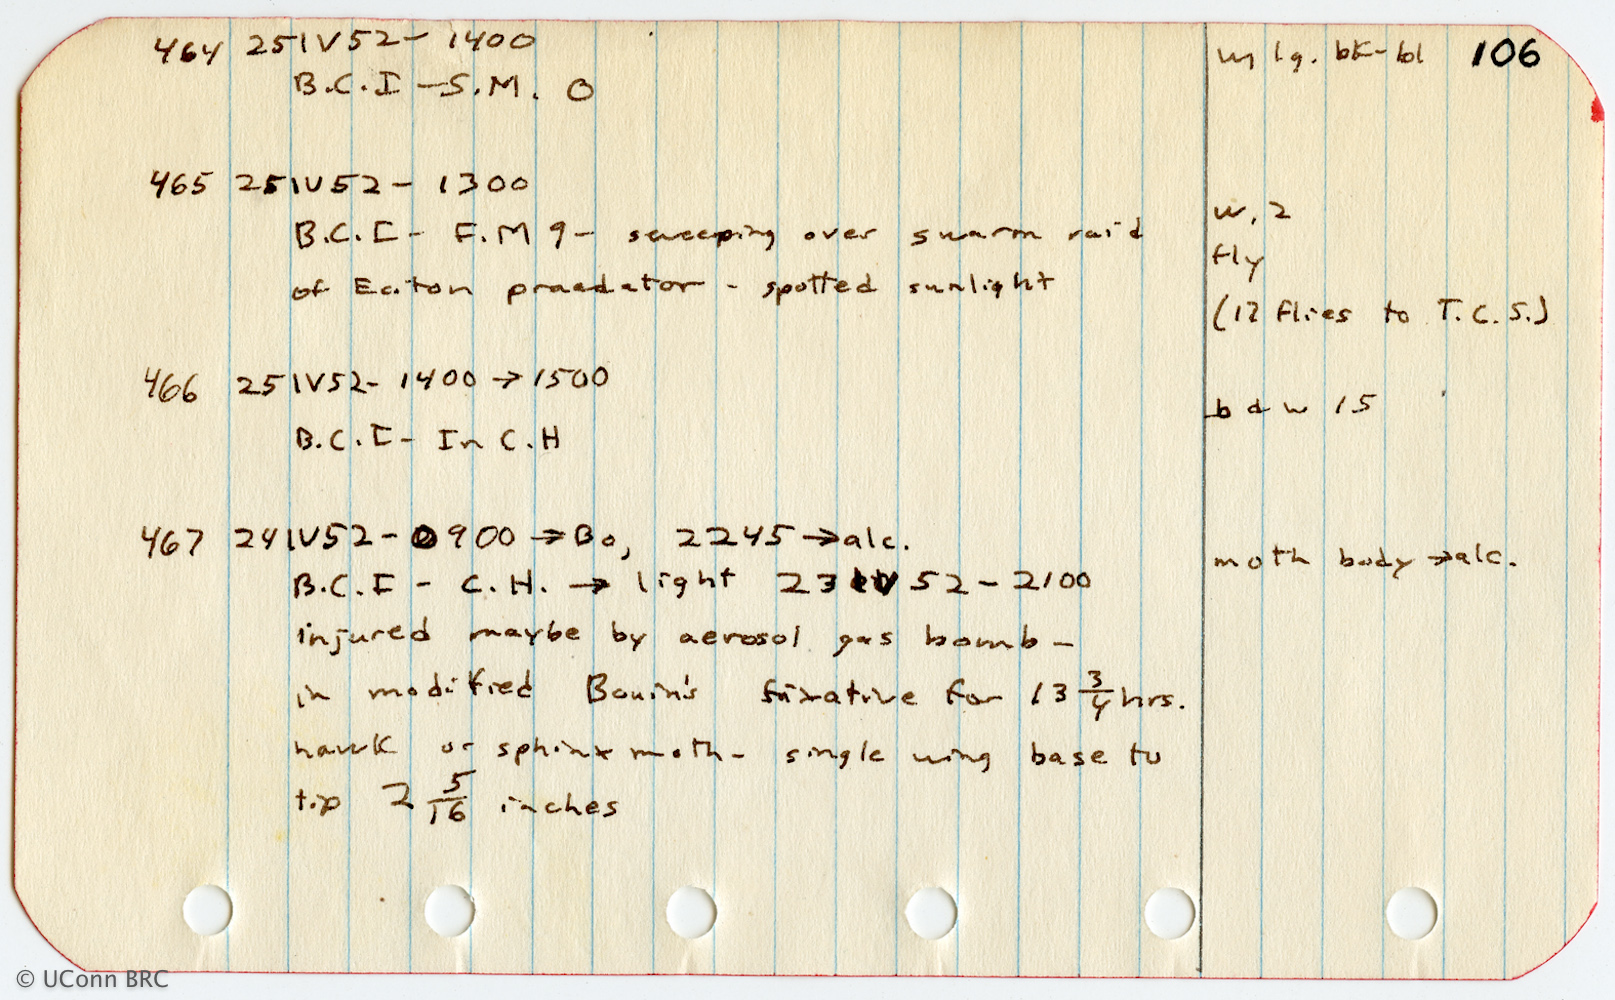 464 25IV52- 1400
w lg. bk-bl 106
B.C.I-S.M. 0
465 25IV52- 1300
w, 2
B.C.I- F.M 9- sweeping over swarm raid
fly
of Eciton praedator - spotted sunlight
(12 flies to T.C.S.)
466 25IV52- 1400 → 1500
b d w 15
B.C.I- In C.H
467 24IV52- 0900 → Bo, 2245 → alc.
moth body → alc.
B.C.I - C.H. → light 23IV52- 2100
injured maybe by aerosol gas bomb -
in modified Bouin's fixative for 13 3/4 hrs.
hawk or sphinx moth- single wing base to
tip 2 5/16 inches
© UConn BRC